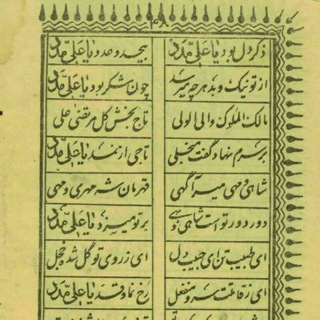 ذکر دل بود یا علی مدد بیحد و عدد یا علی مدد
از تو نیک و بد هر چه میرسد چون شکر بود یا علی مدد
مالک الملوک والی الولی تاج بخش کل مرتضی علی
بر سرم نهاد و گفت سنجلی تاجی از نمد یا علی مدد
شاهی و مهی میر آگهی قهرمان شه مهری و مهی
دور دور تو است شاهی و بر تو یا علی مدد
ای طبیب تن ای حبیب دل ای ز روی تو گل شده خجل
ای ز قامتت سرو منفعل رخ نما و قد یا علی مدد